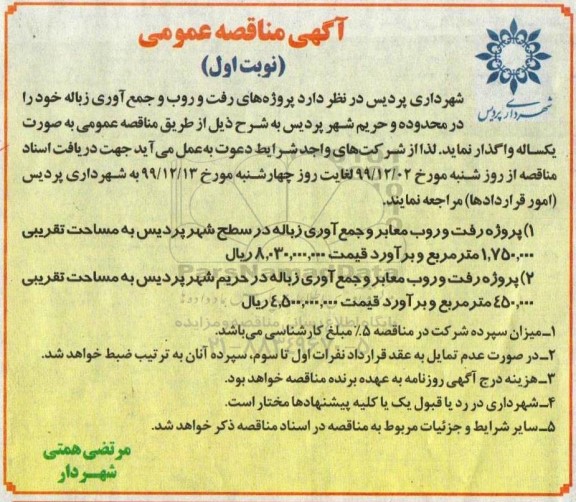 آگهی مناقصه عمومی
(نوبت اول)
شهرداری پردیس
شهرداری پردیس در نظر دارد پروژه‌های رفت و روب و جمع آوری زباله خود را
در محدوده و حریم شهر پردیس به شرح ذیل از طریق مناقصه عمومی به صورت
یکساله واگذار نماید. لذا از شرکت‌های واجد شرایط دعوت به عمل می‌آید جهت دریافت اسناد
مناقصه از روز شنبه مورخ ۹۹/۱۲/۰۲ لغایت روز چهارشنبه مورخ ۹۹/۱۲/۱۳ به شهرداری پردیس
(امور قراردادها) مراجعه نمایند.
۱) پروژه رفت و روب معابر و جمع آوری زباله در سطح شهر پردیس به مساحت تقریبی
۱,۷۵۰,۰۰۰ متر مربع و برآورد قیمت ۸,۰۳۰,۰۰۰,۰۰۰ ریال
۲) پروژه رفت و روب معابر و جمع آوری زباله در حریم شهر پردیس به مساحت تقریبی
۴۵۰,۰۰۰ متر مربع و برآورد قیمت ۴,۵۰۰,۰۰۰,۰۰۰ ریال
۱_ میزان سپرده شرکت در مناقصه ۵٪ مبلغ کارشناسی می‌باشد.
۲_ در صورت عدم تمایل به عقد قرارداد نفرات اول تا سوم، سپرده آنان به ترتیب ضبط خواهد شد.
۳_ هزینه درج آگهی روزنامه به عهده برنده مناقصه خواهد بود.
۴_ شهرداری در رد یا قبول یک یا کلیه پیشنهادها مختار است.
۵_ سایر شرایط و جزئیات مربوط به مناقصه در اسناد مناقصه ذکر خواهد شد.
مرتضی همتی
شهردار